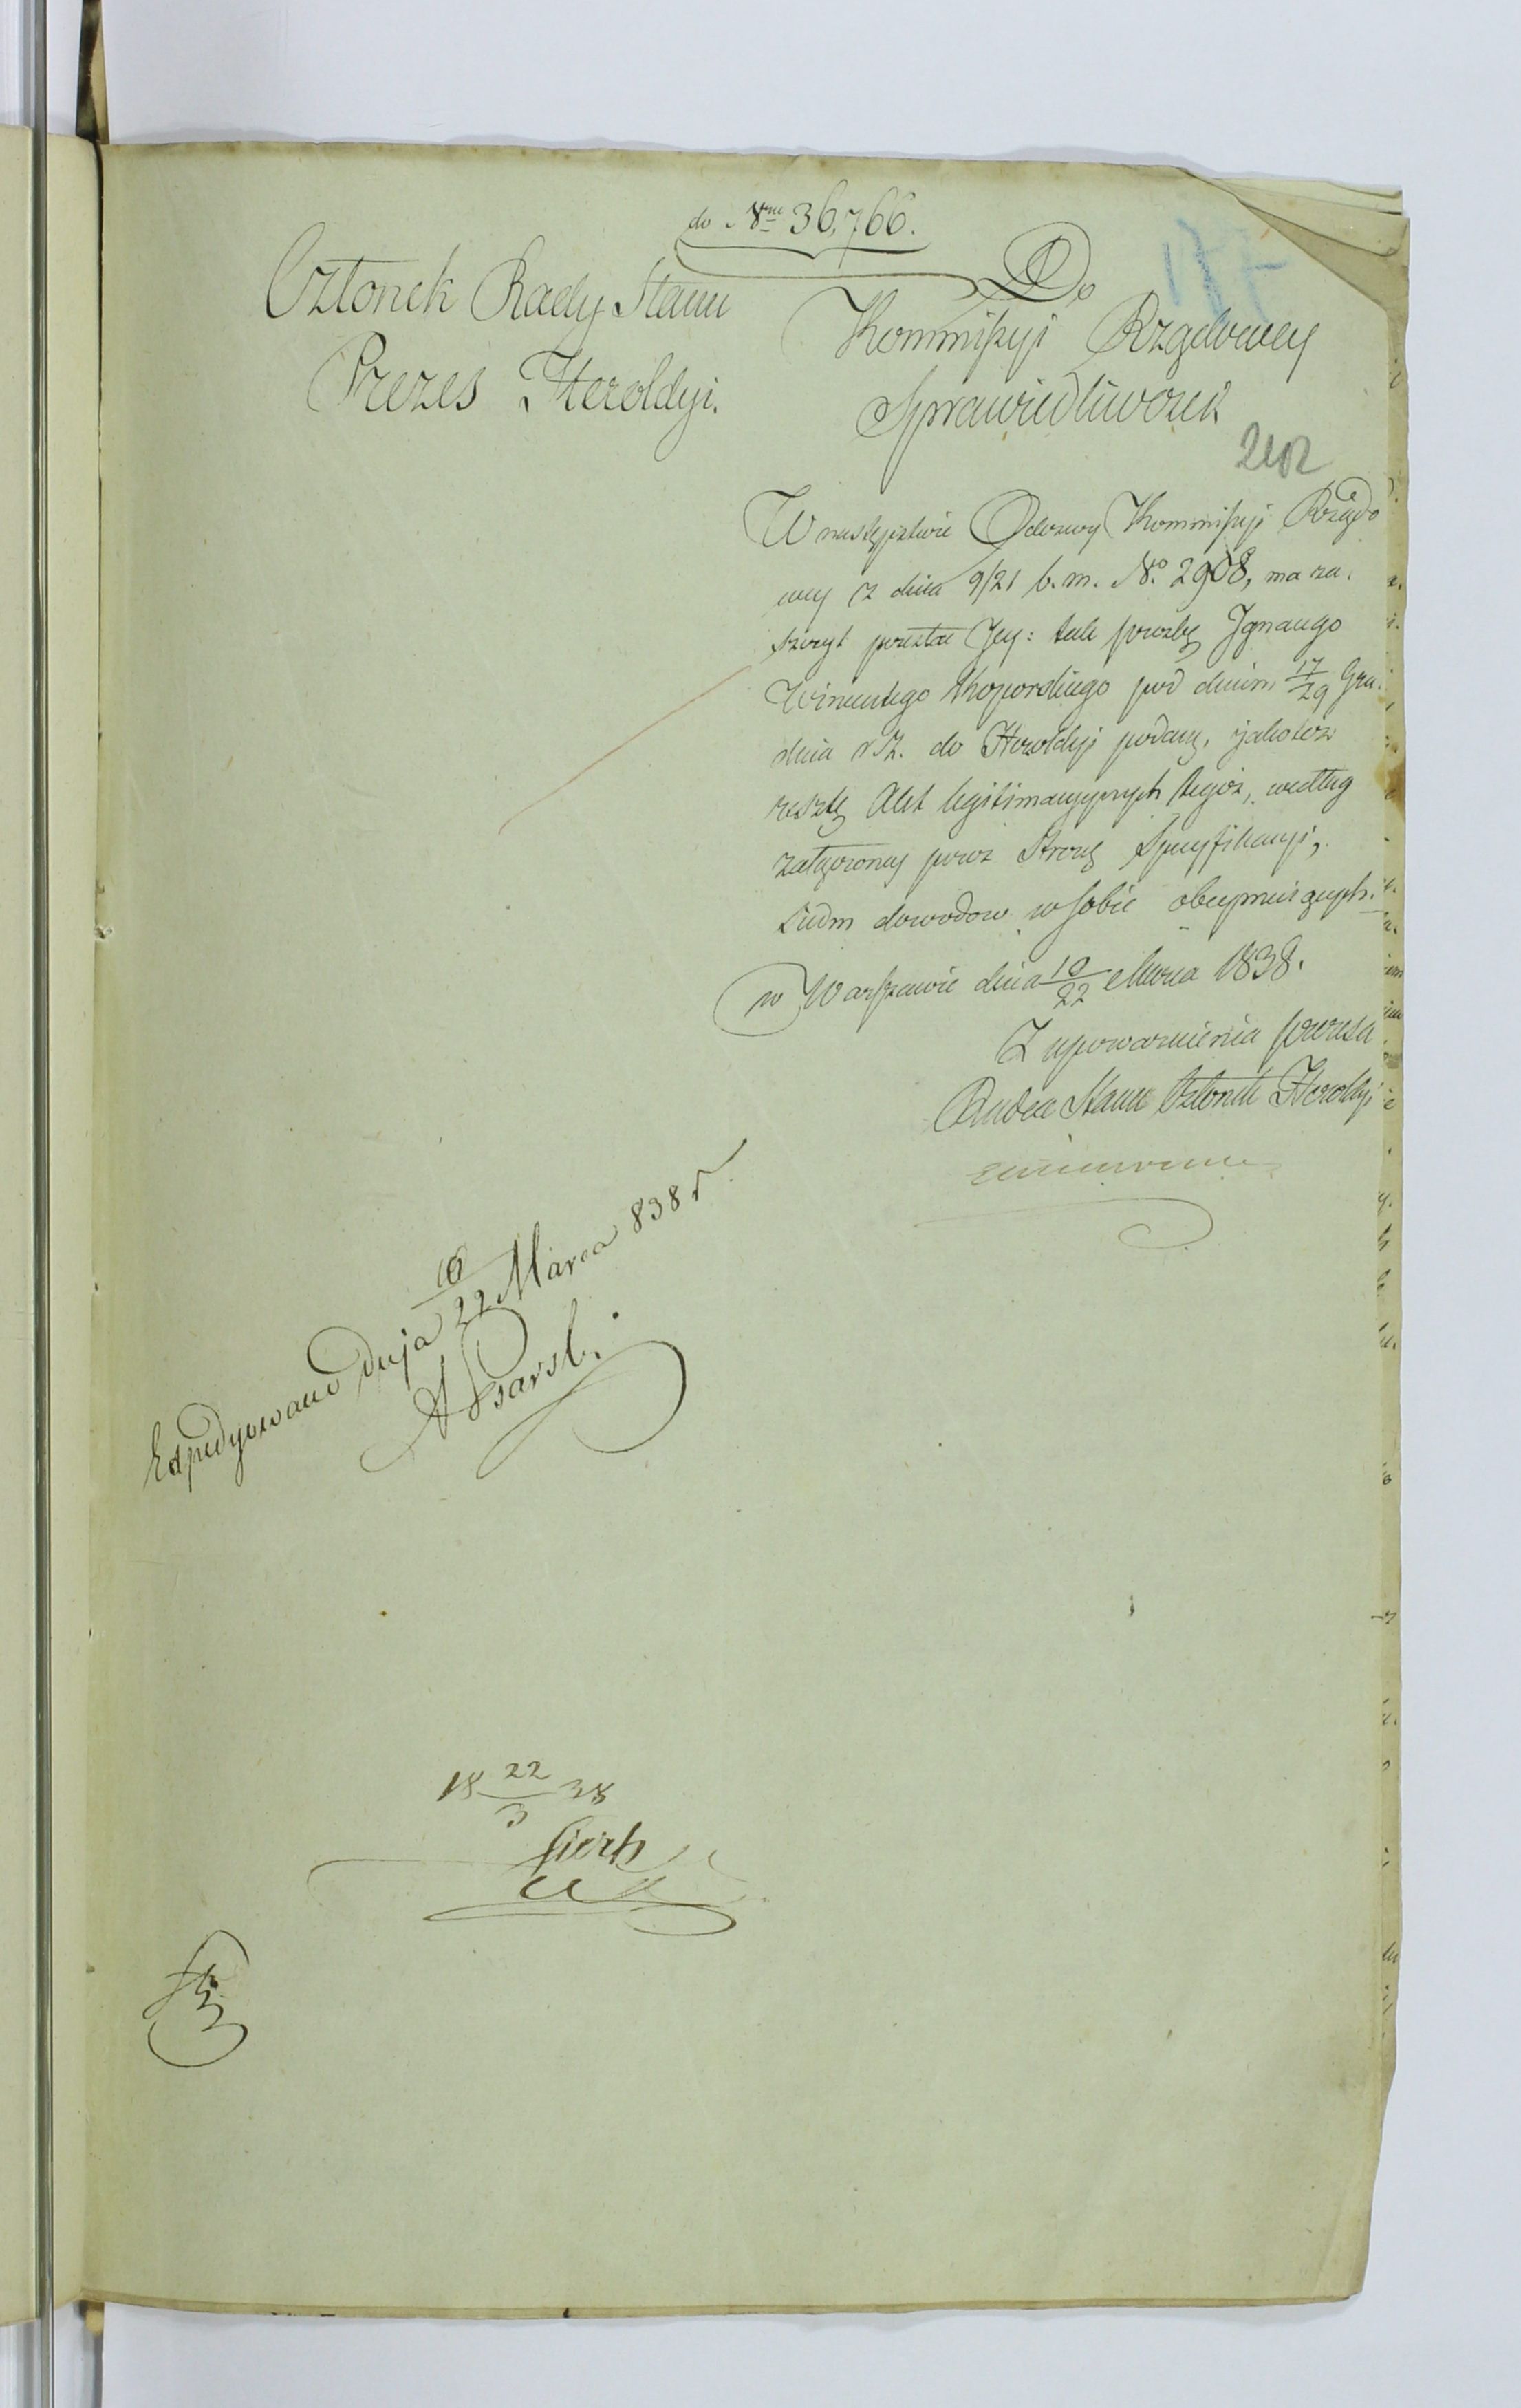 do Nru 36,766.
Członek Rady Stanu
Prezes Heroldyi.
Do
Kommissyi Rządowey
Sprawiedliwości
202
W następstwie Odezwy Kommissyi Rządo
wey z dnia 9/21 b. m. No. 2908, ma za-
szczyt przesłać Jey: tak prozbę Ignacego
Wincentego Koporskiego pod dniem 17/29 Gru-
dnia r. z. do Heroldyi podaną, jakoteż
resztę Akt legitimacyjnych tegoż, według
załączoney przez Stronę Specyfikacyi,
siedm dowodow w sobie obeymuiących.
w Warszawie dnia 10/22 Marca 1838.
Z upoważnienia Prezesa
Radca Stanu Członek Heroldyi
Expedyowano Dnja 10/22 Marca 838 r.
A Psarski
18 22/3 38